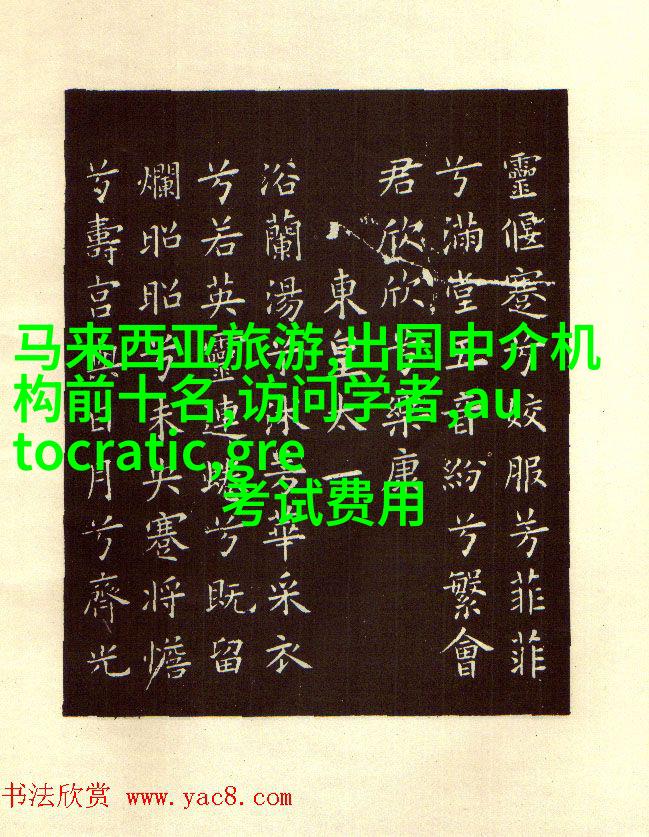 靈偃蹇兮姣服芳菲菲
兮滿堂五音紛兮繁會
君欣欣兮樂康
東皇太一
浴蘭湯兮沐芳華采衣
兮若英靈連蜷兮既留
爛昭昭兮未央蹇將憺
兮壽宫與日月兮齊光
马来西亚旅游,出国中介机
构前十名,访问学者,au
tocratic,gre
考试费用
书法欣赏 www.yac8.com